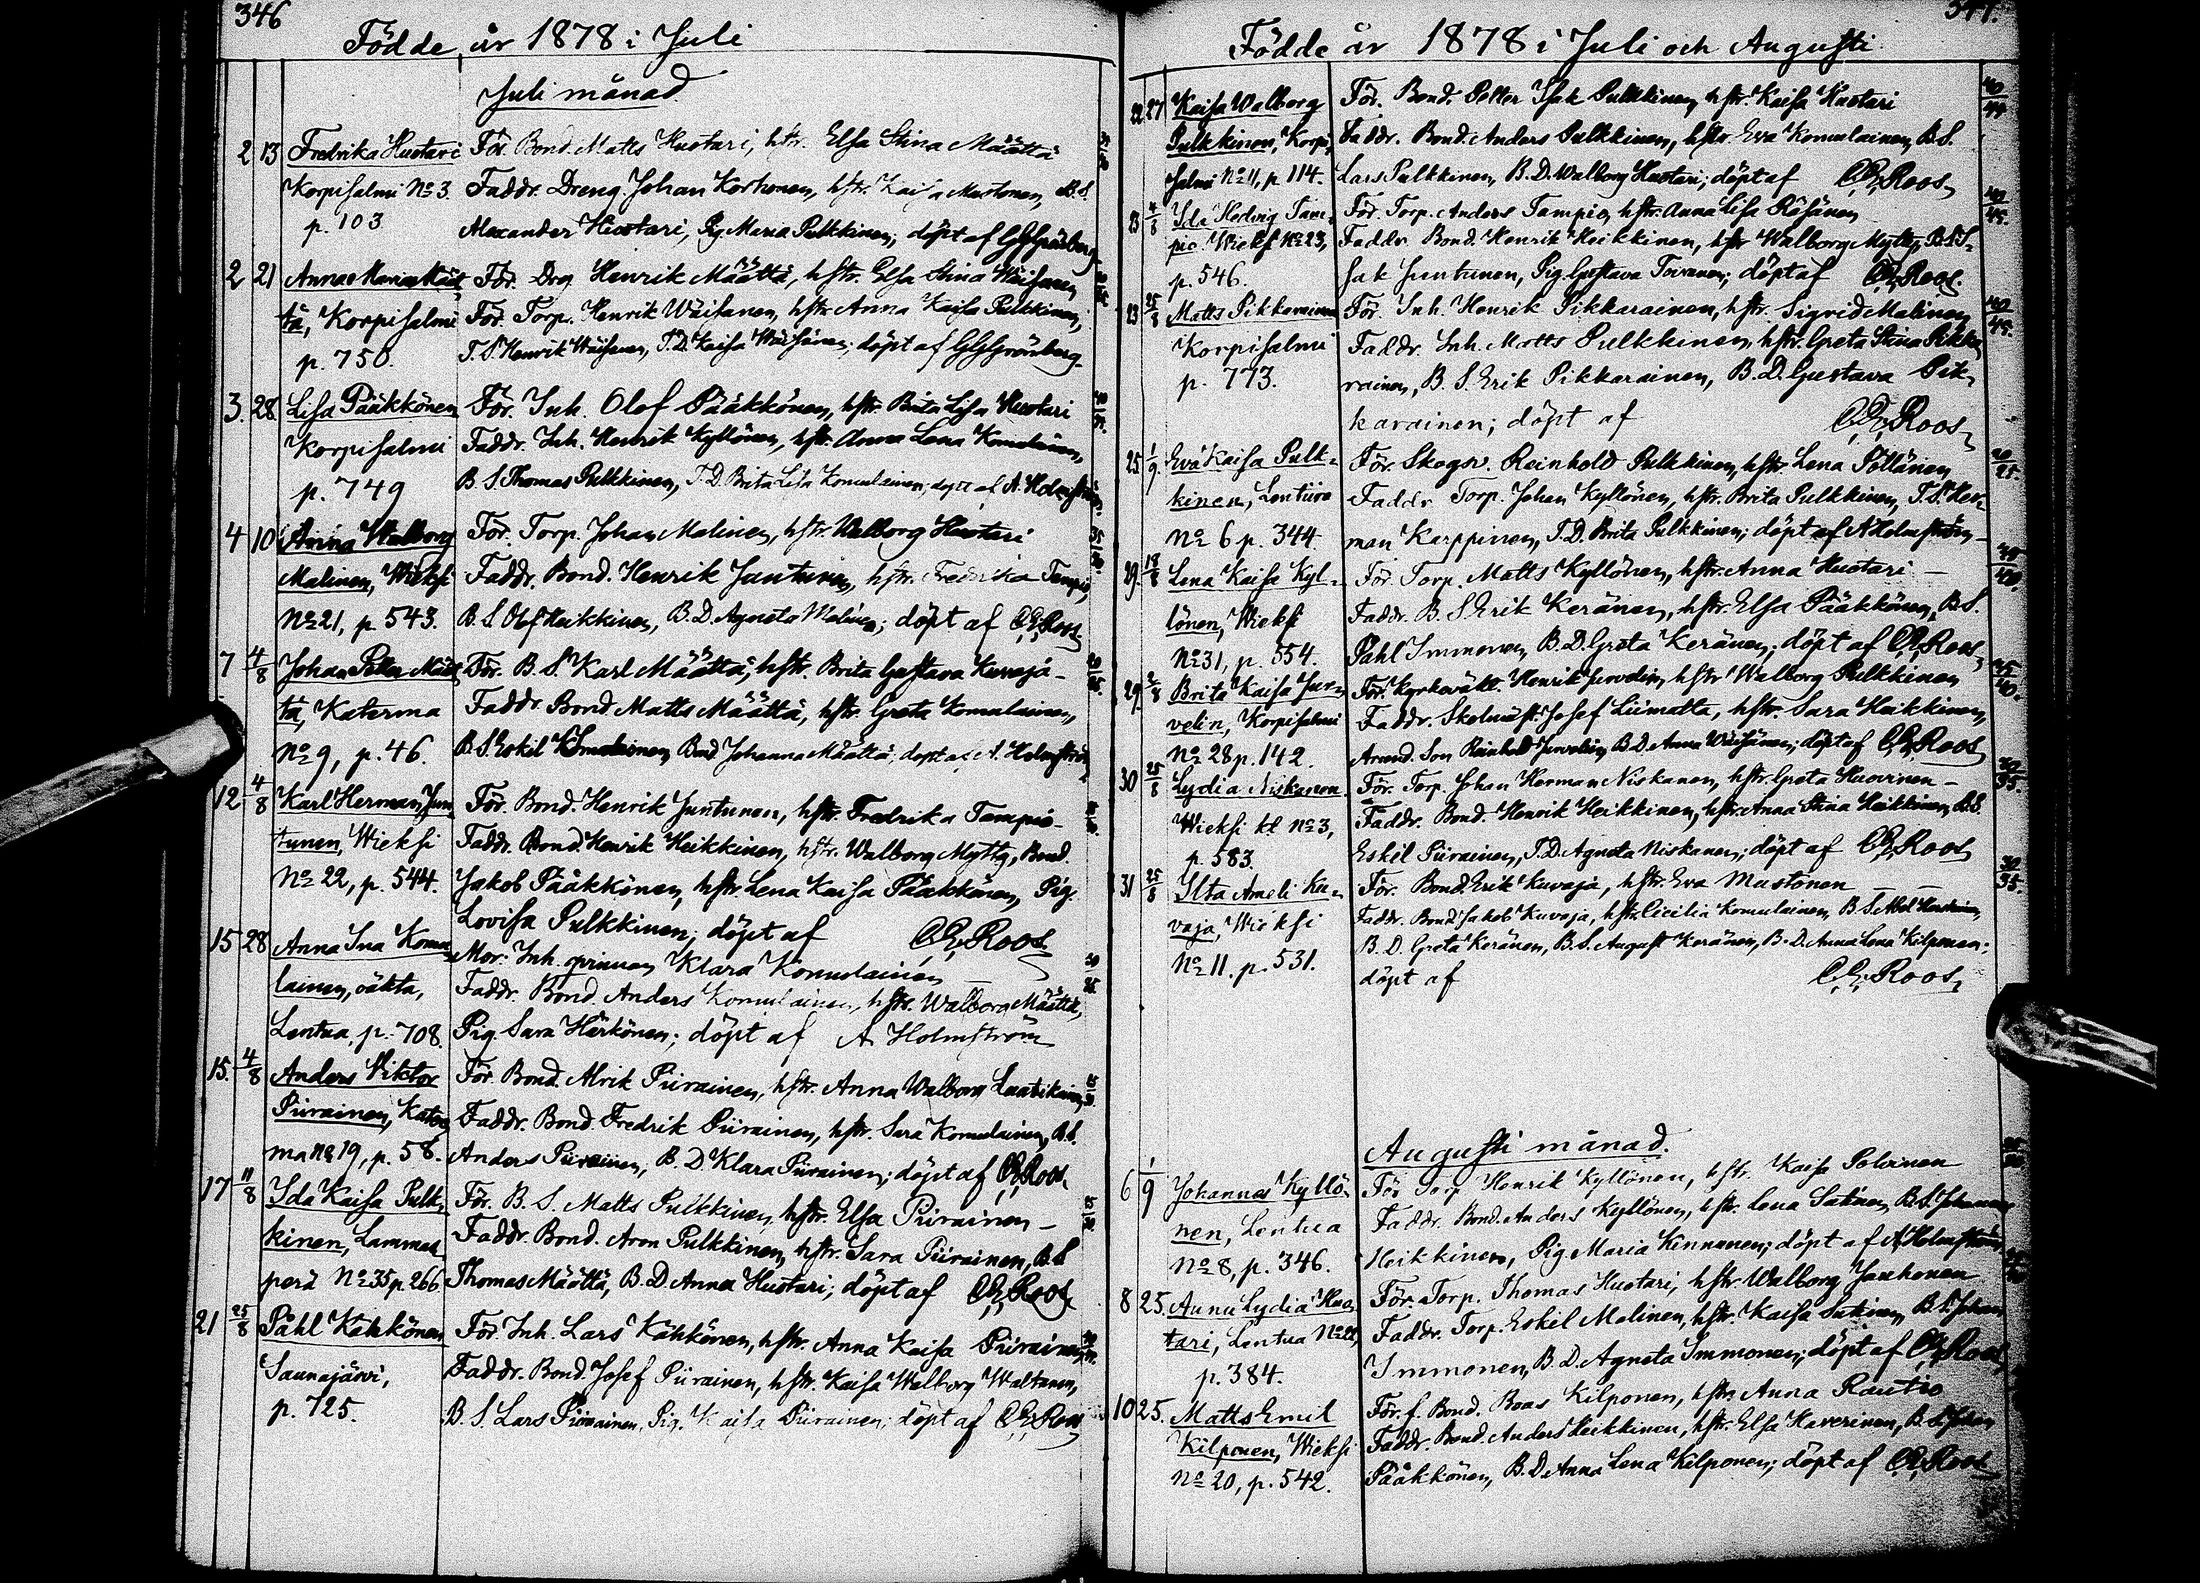 346
Födde år 1878 i Juli
Juli månad
2 13 Fredrika Huotari För. Bond. Matts Huotari, hstr. Elsa Stina Määttä
Korpisalmi No 3. Faddr. Dreng. Johan Korhonen, hstr. Kaisa Mustonen, B.S.
p. 103 Alexander Huotari, Pig. Maria Pulkkinen; döpt af
2 21 Anna Maria Määt För. Drg Henrik Määttä, hstr. Elsa Stina Wäisänen
tä, Korpisalmi För. Torp. Henrik Wäisänen, hstr. Anna Kaisa Pulkkinen,
p. 750. T.S. Henrik Wäisänen, T.D. Kaisa Wäisänen; döpt af
3. 28 Lisa Pääkkönen För. Inh. Olof Pääkkönen, hstr. Brita Lisa Huotari
Korpisalmi Faddr. Inh. Henrik Kyllönen, hstr. Anna Lena Komulainen,
p. 749 B.S. Thomas Pulkkinen, T.D. Brita Lisa Komulainen; döpt af A. Holmström
4 10 Anna Walborg För. Torp. Johan Malinen, hstr. Walborg Huotari
Malinen, Wieksi Faddr. Bond. Henrik Juntunen, hstr. Fredrika Tampio,
No 21, p. 543. B.S. Olof Heikkinen, B.D. Agneta Malinen; döpt af C.E. Roos
7 4/8 Johan Petter Määt För. B.S. Karl Määttä, hstr. Brita Gustava Kuvaja -
tä, Katerma Faddr. Bond Matts Määttä, hstr. Greta Komulainen,
No 9, p. 46. B.S. Eskil Komulainen, Bond Johanna Määttä; döpt af A. Holmström
12 4/8 Karl Herman Jun För. Bond. Henrik Juntunen, hstr. Fredrika Tampio -
tunen, Wieksi Faddr. Bond. Henrik Heikkinen, hstr. Walborg Mytty, Bond.
No 22, p. 544. Jakob Pääkkönen, hstr. Lena Kaisa Pääkkönen, Pig.
Lovisa Pulkkinen; döpt af C.E. Roos
15 28 Anna Ina Komu Mor: Inh. qvinnan Klara Komulainen
lainen, oäkta, Faddr. Bond. Anders Komulainen, hstr. Walborg Määttä,
Lentua, p. 708. Pig. Sara Härkönen; döpt af A Holmström
15. 4/8 Anders Viktor För. Bond. Alrik Piirainen, hstr. Anna Walborg Laatikainen
Piirainen, Kater Faddr. Bond. Fredrik Piirainen, hstr. Sara Komulainen, B.S.
ma No 19, p. 58. Anders Piirainen, B.D Klara Piirainen; döpt af C.E. Roos
17 11/8 Ida Kaisa Pulk För. B.S. Matts Pulkkinen, hstr. Elsa Piirainen -
kinen, Lammas Faddr. Bond. Aron Pulkkinen, hstr. Sara Piirainen, B.S
perä No 35 p. 266 Thomas Määttä, B.D. Anna Huotari; döpt af C.E. Roos
21 25/8 Påhl Kähkönen För. Inh. Lars Kähkönen, hstr. Anna Kaisa Piirainen
Saunajärvi, Faddr. Bond. Josef Piirainen, hstr. Kaisa Walborg Waltanen,
p. 725. B.S. Lars Piirainen, Pig. Kaisa Piirainen; döpt af C.E. Roos
347.
Födde år 1878 i Juli och Augusti
22 27 Kaisa Walborg För. Bond. Petter Isak Pulkkinen, hstr. Kaisa Huotari 40/44
Pulkkinen, Korpi Faddr. Bond. Anders Pulkkinen, hstr. Eva Komulainen, B.S.
salmi No 11, p 114. Lars Pulkkinen, B.D. Walborg Huotari; döpt af C.E. Roos
23 4/8 Ida Hedvig Tam- För. Torp. Anders Tampio, hstr. Anna Lisa Räsänen 40/45.
pio Wieksi No 23, Faddr. Bond. Henrik Heikkinen, hstr Walborg Mytty, B.S. I-
p. 546. sak Juntunen, Pig. Gustava Toivanen; döpt af C.E. Roos.
23 25/8 Matts Pikkarainen För. Inh. Henrik Pikkarainen, hstr. Sigrid Malinen 40/45.
Korpisalmi Faddr. Inh. Matts Pulkkinen, hstr. Greta Stina Pikka
p. 773. rainen, B.S. Erik Pikkarainen, B.D. Gustava Pik-
karainen; döpt af C.E. Roos
25 1/9. Eva Kaisa Pulk- För. Skogsv. Reinhold Pulkkinen, hstr Lena Pöllänen 20/25.
kinen, Lentiira Faddr Torp. Johan Kyllönen, hstr. Brita Pulkkinen, T.S. Her-
No 6 p. 344 man Karppinen, T.D. Brita Pulkkinen; döpt af A Holmström
29. 18/8 Lena Kaisa Kyl- För Torp. Matts Kyllönen, hstr. Anna Huotari -
lönen, Wieksi Faddr. B.S. Erik Keränen, hstr. Elsa Pääkkönen, B.S.
No 31, p. 554. Påhl Immonen, B.D. Greta Keränen; döpt af C.E. Roos
29. Brita Kaisa Juv- För. Kyrkovakt. Henrik Juvelin, hstr Walborg Pulkkinen
velin, Korpisalmi Faddr. Skolmäst. Josef Liimatta, hstr. Sara Heikkinen,
No 28 p. 142. Arend. Son Reinhold Juvelin, B.D. Anna Wäisänen; döpt af C.E. Roos
30 25/8 Lydia Niskanen För. Torp. Johan Herman Niskanen, hstr. Greta Huovinen - 30/35.
Wieksi kt No 3, Faddr. Bond. Henrik Heikkinen, hstr. Anna Stina Heikkinen, B.S.
p. 583. Eskil Piirainen, T.D. Agneta Niskanen; döpt af C.E. Roos
31 25/8 Ilta Ameli Ku- För. Bond. Erik Kuvaja, hstr. Eva Mustonen 30/35.
vaja, Wieksi Faddr. Bond Jakob Kuvaja, hstr. Cicilia Komulainen, B.S.
No 11. p. 531. B.D. Greta Keränen, B.S. August Keränen, B.D. Anna Lena Kilponen;
döpt af C.E. Roos
Augusti månad.
6 1/9 Johannes Kyllö- För Torp Henrik Kyllönen, hstr. Kaisa Polvinen
nen, Lentua Faddr. Bond. Anders Kyllönen, hstr. Lena Sutinen, B.S. Johannes
No 8, p. 346. Heikkinen, Pig Maria Kinnunen; döpt af A Holmström
8 25. Anna Lydia Huo För. Torp. Thomas Huotari, hstr. Walborg Jauhonen
tari, Lentua No 22, Faddr. Torp. Eskil Malinen, hstr. Kaisa Sutinen, B.S. Johan
p. 384. Immonen, B.D. Agneta Immonen; döpt af C.E. Roos
10 25. Matts Emil För. f. Bond. Boas Kilponen, hstr. Anna Rautio
Kilponen, Wieksi Faddr. Bond. Anders Heikkinen, hstr. Elsa Haverinen, B.S. Johan
No 20, p. 542. Pääkkönen, B.D. Anna Lena Kilponen; döpt af C.E. Roos